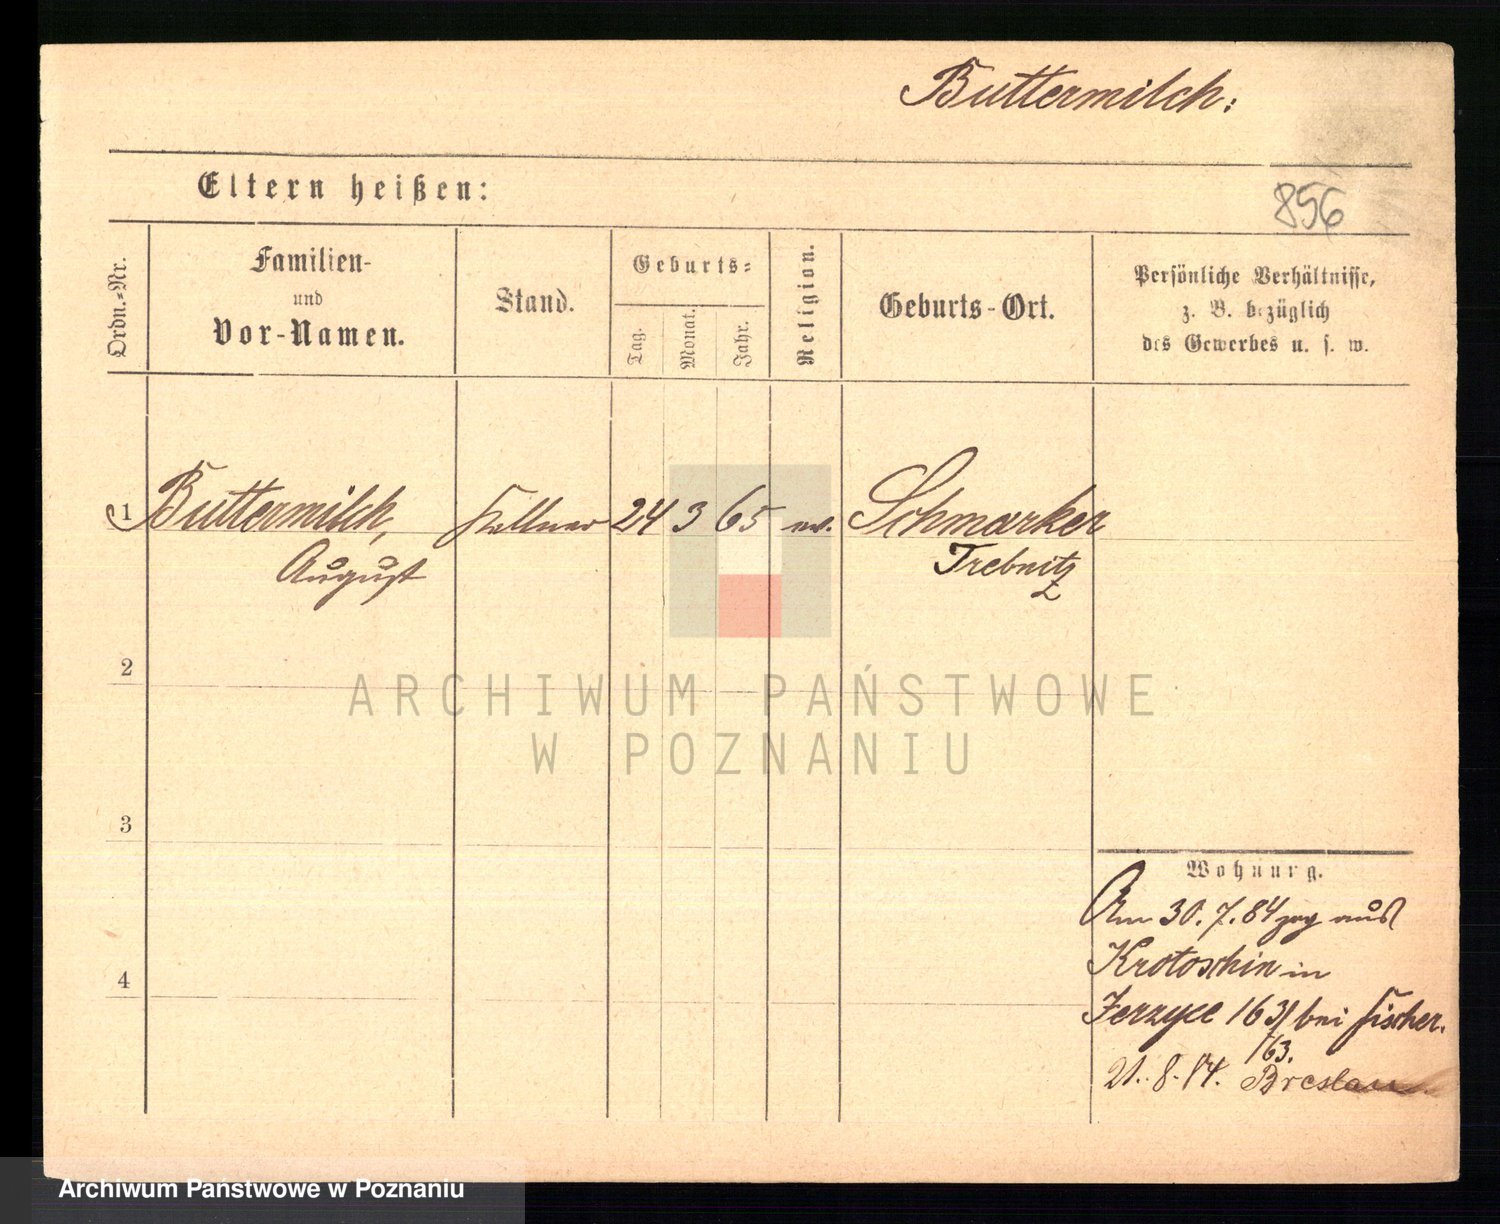 Buttermilch:
Eltern heißen:
856
Ordn.=Nr.
Familien-
und
Vor-Namen.
Stand.
Geburts=
Tag.
Monat.
Jahr.
Religion.
Geburts-Ort.
Persönliche Verhältnisse,
z. B. bezüglich
des Gewerbes u. s. w.
1
Buttermilch,
August
Kellner
24
3
65
ev.
Schmarker
Trebnitz
2
ARCHIWUM PAŃSTWOWE
W POZNANIU
3
Wohnung.
Am 30. 7. 84 zog aus
4
Krotoschin in
Jerzyce 163 bei Fischer.
163.
21. 8. 84. Breslau
Archiwum Państwowe w Poznaniu